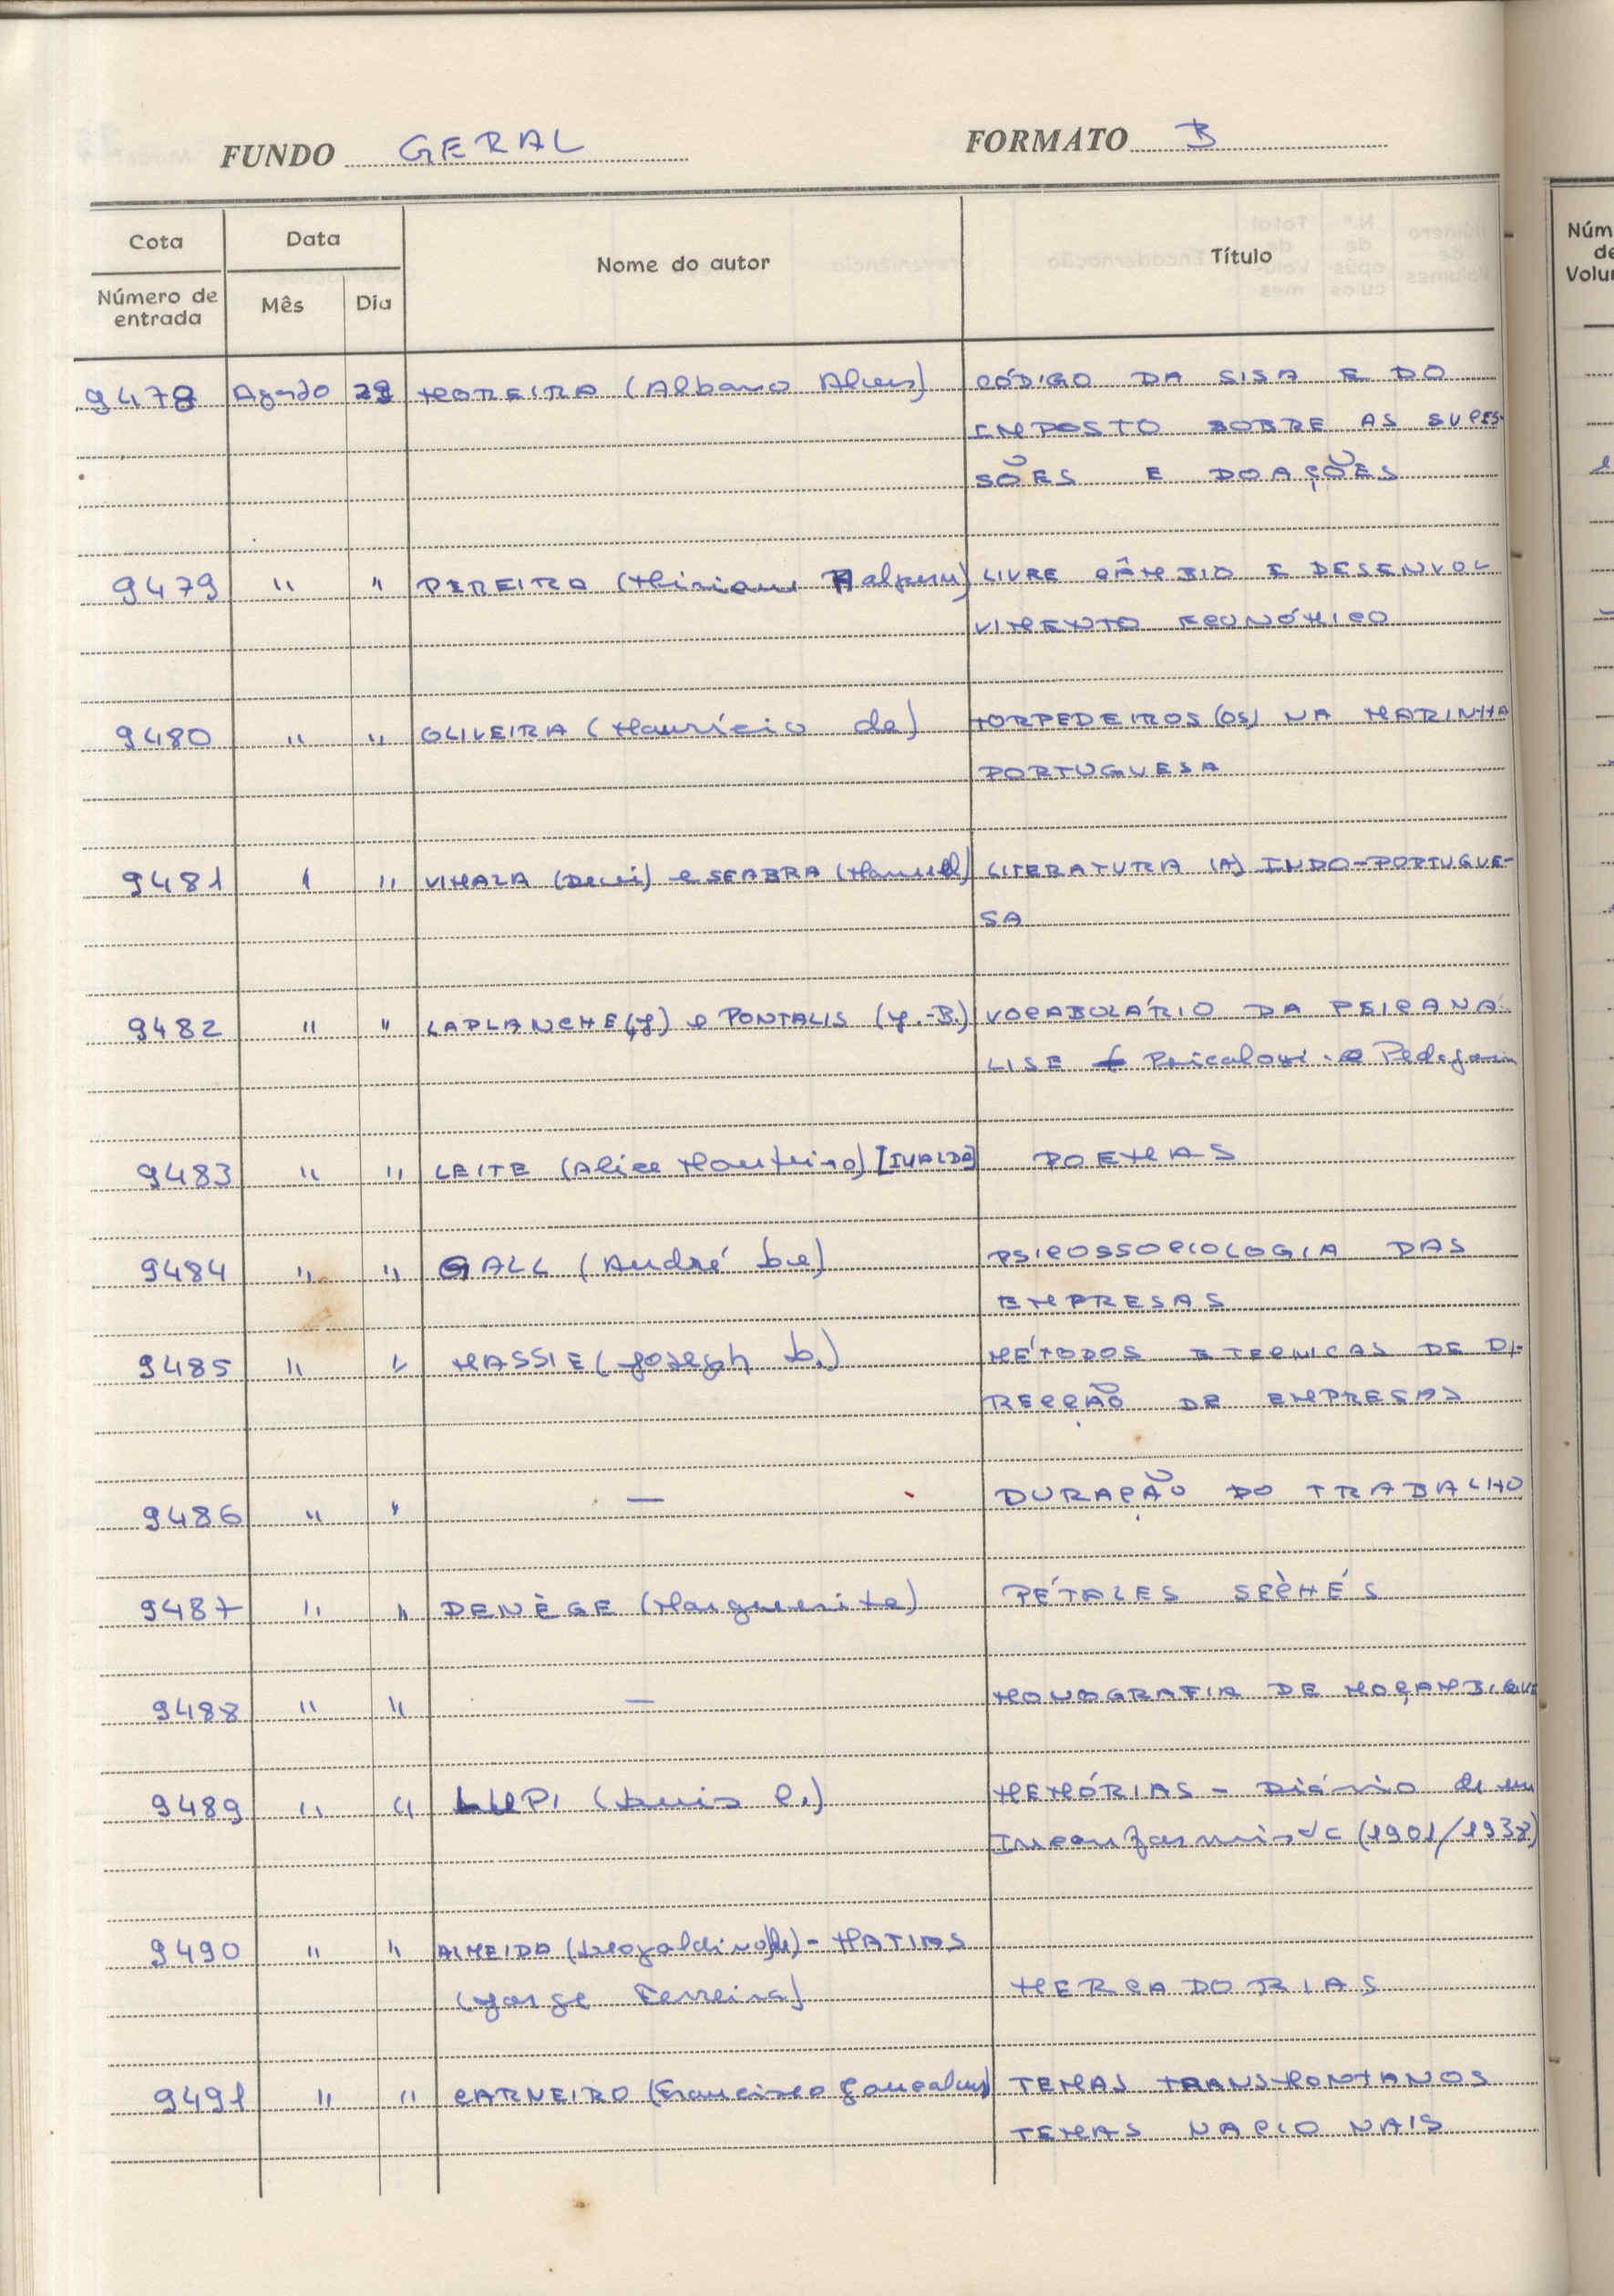 FUNDO GERAL FORMATO B
Cota Data Nome do autor Título
Número de entrada Mês Dia
9478 Agosto 29 MOREIRA (Albano Alves) CÓDIGO DA SISA E DO
IMPOSTO SOBRE AS SUCES-
SÕES E DOAÇÕES
9479 " " PEREIRA (Miriam Halpern) LIVRE CÂMBIO E DESENVOL
VIMENTO ECONÓMICO
9480 " " OLIVEIRA (Maurício de) TORPEDEIROS (OS) NA MARINHA
PORTUGUESA
9481 " " VIMALA (Devi) e SEABRA (Manuel) LITERATURA (A) INDO-PORTUGUE-
SA
9482 " " LAPLANCHE (J) e PONTALIS (J.-B.) VOCABULÁRIO DA PSICANÁ-
LISE Psicologi e Pedagogia
9483 " " LEITE (Alice Monteiro) POEMAS
9484 " " GALL (André Le) PSICOSSOCIOLOGIA DAS
EMPRESAS
9485 " " MASSIE (Joseph L.) MÉTODOS E TECNICAS DE DI-
RECÇÃO DE EMPRESAS
9486 " " — DURAÇÃO DO TRABALHO
9487 " " DENÈGE (Marguerite) PÉTALES SÈCHÉS
9488 " " — MONOGRAFIA DE MOÇAMBIQUE
9489 " " LUPI (Luis C.) MEMÓRIAS - Diário de um
Inconformista (1901/1938)
9490 " " ALMEIDA (Leopoldino de) - MATIAS
(Jorge Ferreira) MERCADORIAS
9491 " " CARNEIRO (Francisco Gonçalves) TEMAS TRANSMONTANOS
TEMAS NACIONAIS
Núm
de
Volu